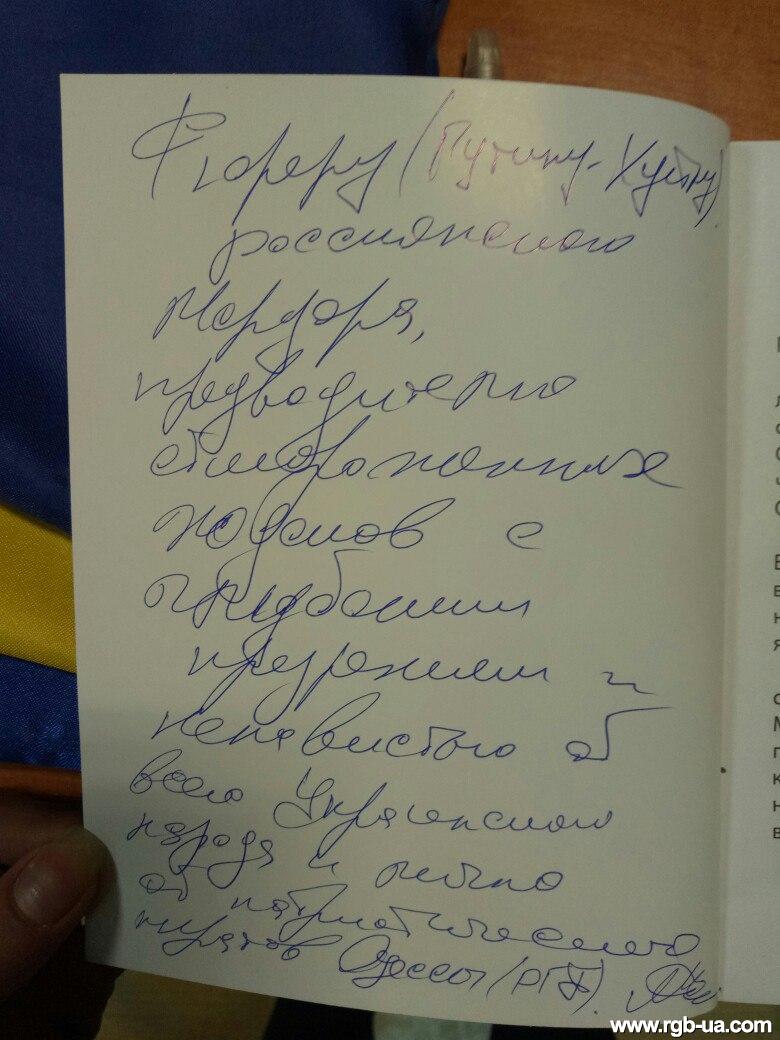 Фюреру (Путину-Хуйлу)
россиянского
Мордора,
предводителю
отмороженных
уродов с
глубоким
презрением и
ненавистью от
всего Украинского
народа и лично
от патриотического
Одессы (РГБ).
www.rgb-ua.com